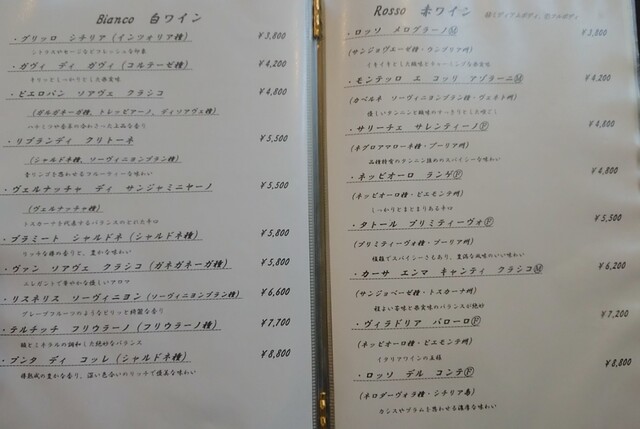 Bianco 白ワイン
・グリッロ シチリア (インツォリア種) ¥3,800
・ガヴィ ディ ガヴィ (コルテーゼ種) ¥4,200
・ピエロパン ソアヴェ クラシコ ¥4,800
(ガルガネーガ種、トレッビアーノ、ディソアヴェ種)
・リブランディ クリトーネ ¥5,500
(シャルドネ種、ソーヴィニヨンブラン種)
青リンゴを思わせるフルーティーな味わい
・ヴェルナッチャ ディ サンジャミニャーノ ¥5,500
(ヴェルナッチャ種)
トスカーナを代表するバランスのとれた辛口
・プラミート シャルドネ (シャルドネ種) ¥5,800
リッチな樽の香りと、豊かな味わい
・ヴァン ソアヴェ クラシコ (ガネガネーガ種) ¥5,800
エレガントで華やかな優しいアロマ
・リスネリス ソーヴィニヨン (ソーヴィニヨンブラン種) ¥6,600
グレープフルーツのようなピリッと綺麗な香り
・テルチッチ フリウラーノ (フリウラーノ種) ¥7,700
酸とミネラルの調和した絶妙なバランス
・プンタ ディ コッレ (シャルドネ種) ¥8,800
樽熟成の豊かな香り、深い色合いのリッチで優美な味わい
Rosso 赤ワイン
・ロッソ メログラーノⓂ ¥3,800
(サンジョヴェーゼ種・ウンブリア州)
イキイキとした酸味とチャーミングな果実味
・モンテッロ エ コッリ アゾラーニⓂ ¥4,200
(カベルネ ソーヴィニヨンブラン種・ヴェネト州)
優しいタンニンと酸味のすーきりとした喉ごし
・サリーチェ サレンティーノⒻ ¥4,800
(ネグロアマローネ種・プーリア州)
品種特有のタンニン強めのスパイシーな味わい
・ネッビオーロ ランゲⒻ ¥4,800
(ネッビオーロ種・ピエモンテ州)
しっかりとまとまりある辛口
・タトール プリミティーヴォⒻ ¥5,500
(プリミティーヴォ種・プーリア州)
複雑でスパイシーさもあり、豊満な風味のいい味わい
・カーサ エンマ キャンティ クラシコⓂ ¥6,200
(サンジョベーゼ種・トスカーナ州)
程よい苦味と果実味のバランスが絶妙
・ヴィラドリア バローロⒻ ¥7,200
(ネッビオーロ種・ピエモンテ州)
イタリアワインの王様
・ロッソ デル コンテⒻ ¥8,800
(ネロダーヴォラ種・シチリア島)
カシスやプラムを思わせる濃厚な味わい